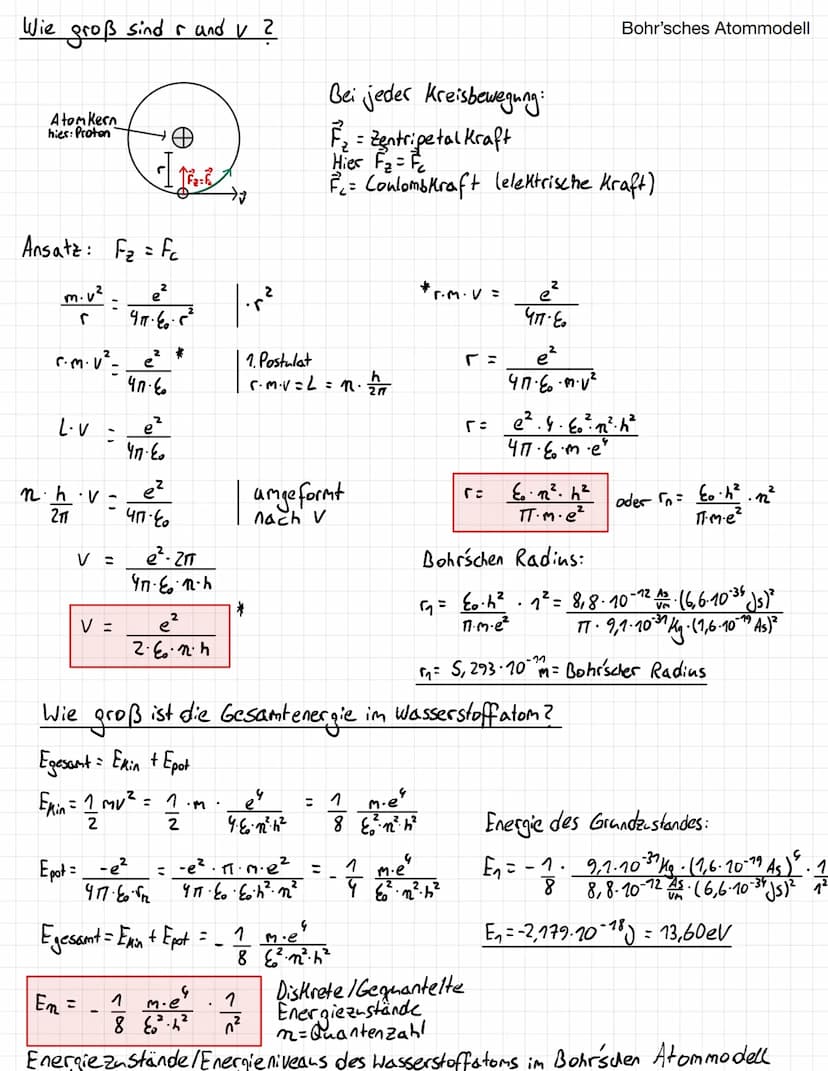 Wie groß sind r und v ?
Bohr'sches Atommodell
Atomkern
hier: Proton
r
F⃗z=F⃗c
v⃗
Bei jeder Kreisbewegung:
F⃗z = Zentripetalkraft
Hier F⃗z = F⃗c
F⃗c = Coulombkraft (elektrische Kraft)
Ansatz: Fz = Fc
m·v²/r = e²/(4π·ε₀·r²) | ·r²
r·m·v² = e²/(4π·ε₀) * | 1. Postulat
r·m·v = L = n · h/2π
L·v = e²/(4π·ε₀)
n · h/2π · v = e²/(4π·ε₀) | umgeformt
nach v
v = e²·2π/(4π·ε₀·n·h)
v = e²/(2·ε₀·n·h) *
* r·m·v = e²/(4π·ε₀)
r = e²/(4π·ε₀·m·v²)
r = e²·4·ε₀²·n²·h²/(4π·ε₀·m·e⁴)
r = ε₀·n²·h²/(π·m·e²) oder rn = ε₀·h²/(π·m·e²) · n²
Bohr'schen Radius:
r₁ = ε₀·h²/(π·m·e²) · 1² = 8,8·10⁻¹² As/Vm · (6,6·10⁻³⁴ Js)²/(π · 9,1·10⁻³¹ kg · (1,6·10⁻¹⁹ As)²)
r₁ = 5,293·10⁻¹¹ m = Bohr'scher Radius
Wie groß ist die Gesamtenergie im Wasserstoffatom?
Egesamt = Ekin + Epot
Ekin = 1/2 mv² = 1/2 · m · e⁴/(4·ε₀·n²·h²) = 1/8 m·e⁴/(ε₀²·n²·h²)
Epot = -e²/(4π·ε₀·rn) = -e²·π·m·e²/(4π·ε₀·ε₀·h²·n²) = - 1/4 m·e⁴/(ε₀²·n²·h²)
Egesamt = Ekin + Epot = - 1/8 m·e⁴/(ε₀²·n²·h²)
En = - 1/8 m·e⁴/(ε₀²·h²) · 1/n²
Diskrete/Gequantelte
Energiezustände
n=Quantenzahl
Energie des Grundzustandes:
E₁ = - 1/8 · 9,1·10⁻³¹ kg · (1,6·10⁻¹⁹ As)⁴/(8,8·10⁻¹² As/Vm · (6,6·10⁻³⁴ Js)²) · 1/1²
E₁ = -2,179·10⁻¹⁸ J = 13,60 eV
Energiezustände/Energieniveaus des Wasserstoffatoms im Bohr'schen Atommodell